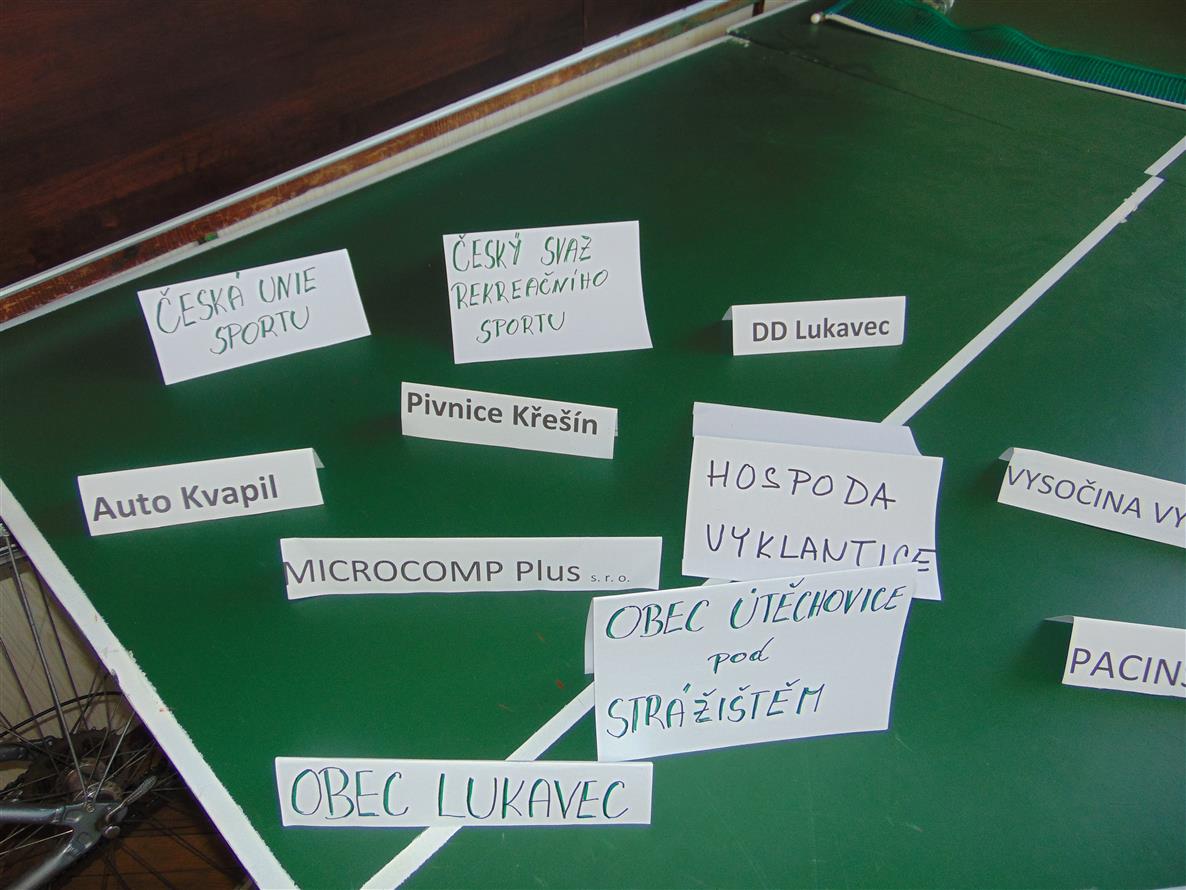 ČESKÁ UNIE
SPORTU
ČESKÝ SVAZ
REKREAČNÍHO
SPORTU
DD Lukavec
Pivnice Křešín
Auto Kvapil
HOSPODA
VYKLANTICE
VYSOČINA VY
MICROCOMP Plus s. r. o.
OBEC ÚTĚCHOVICE
pod
STRÁŽIŠTĚM
PACINS
OBEC LUKAVEC